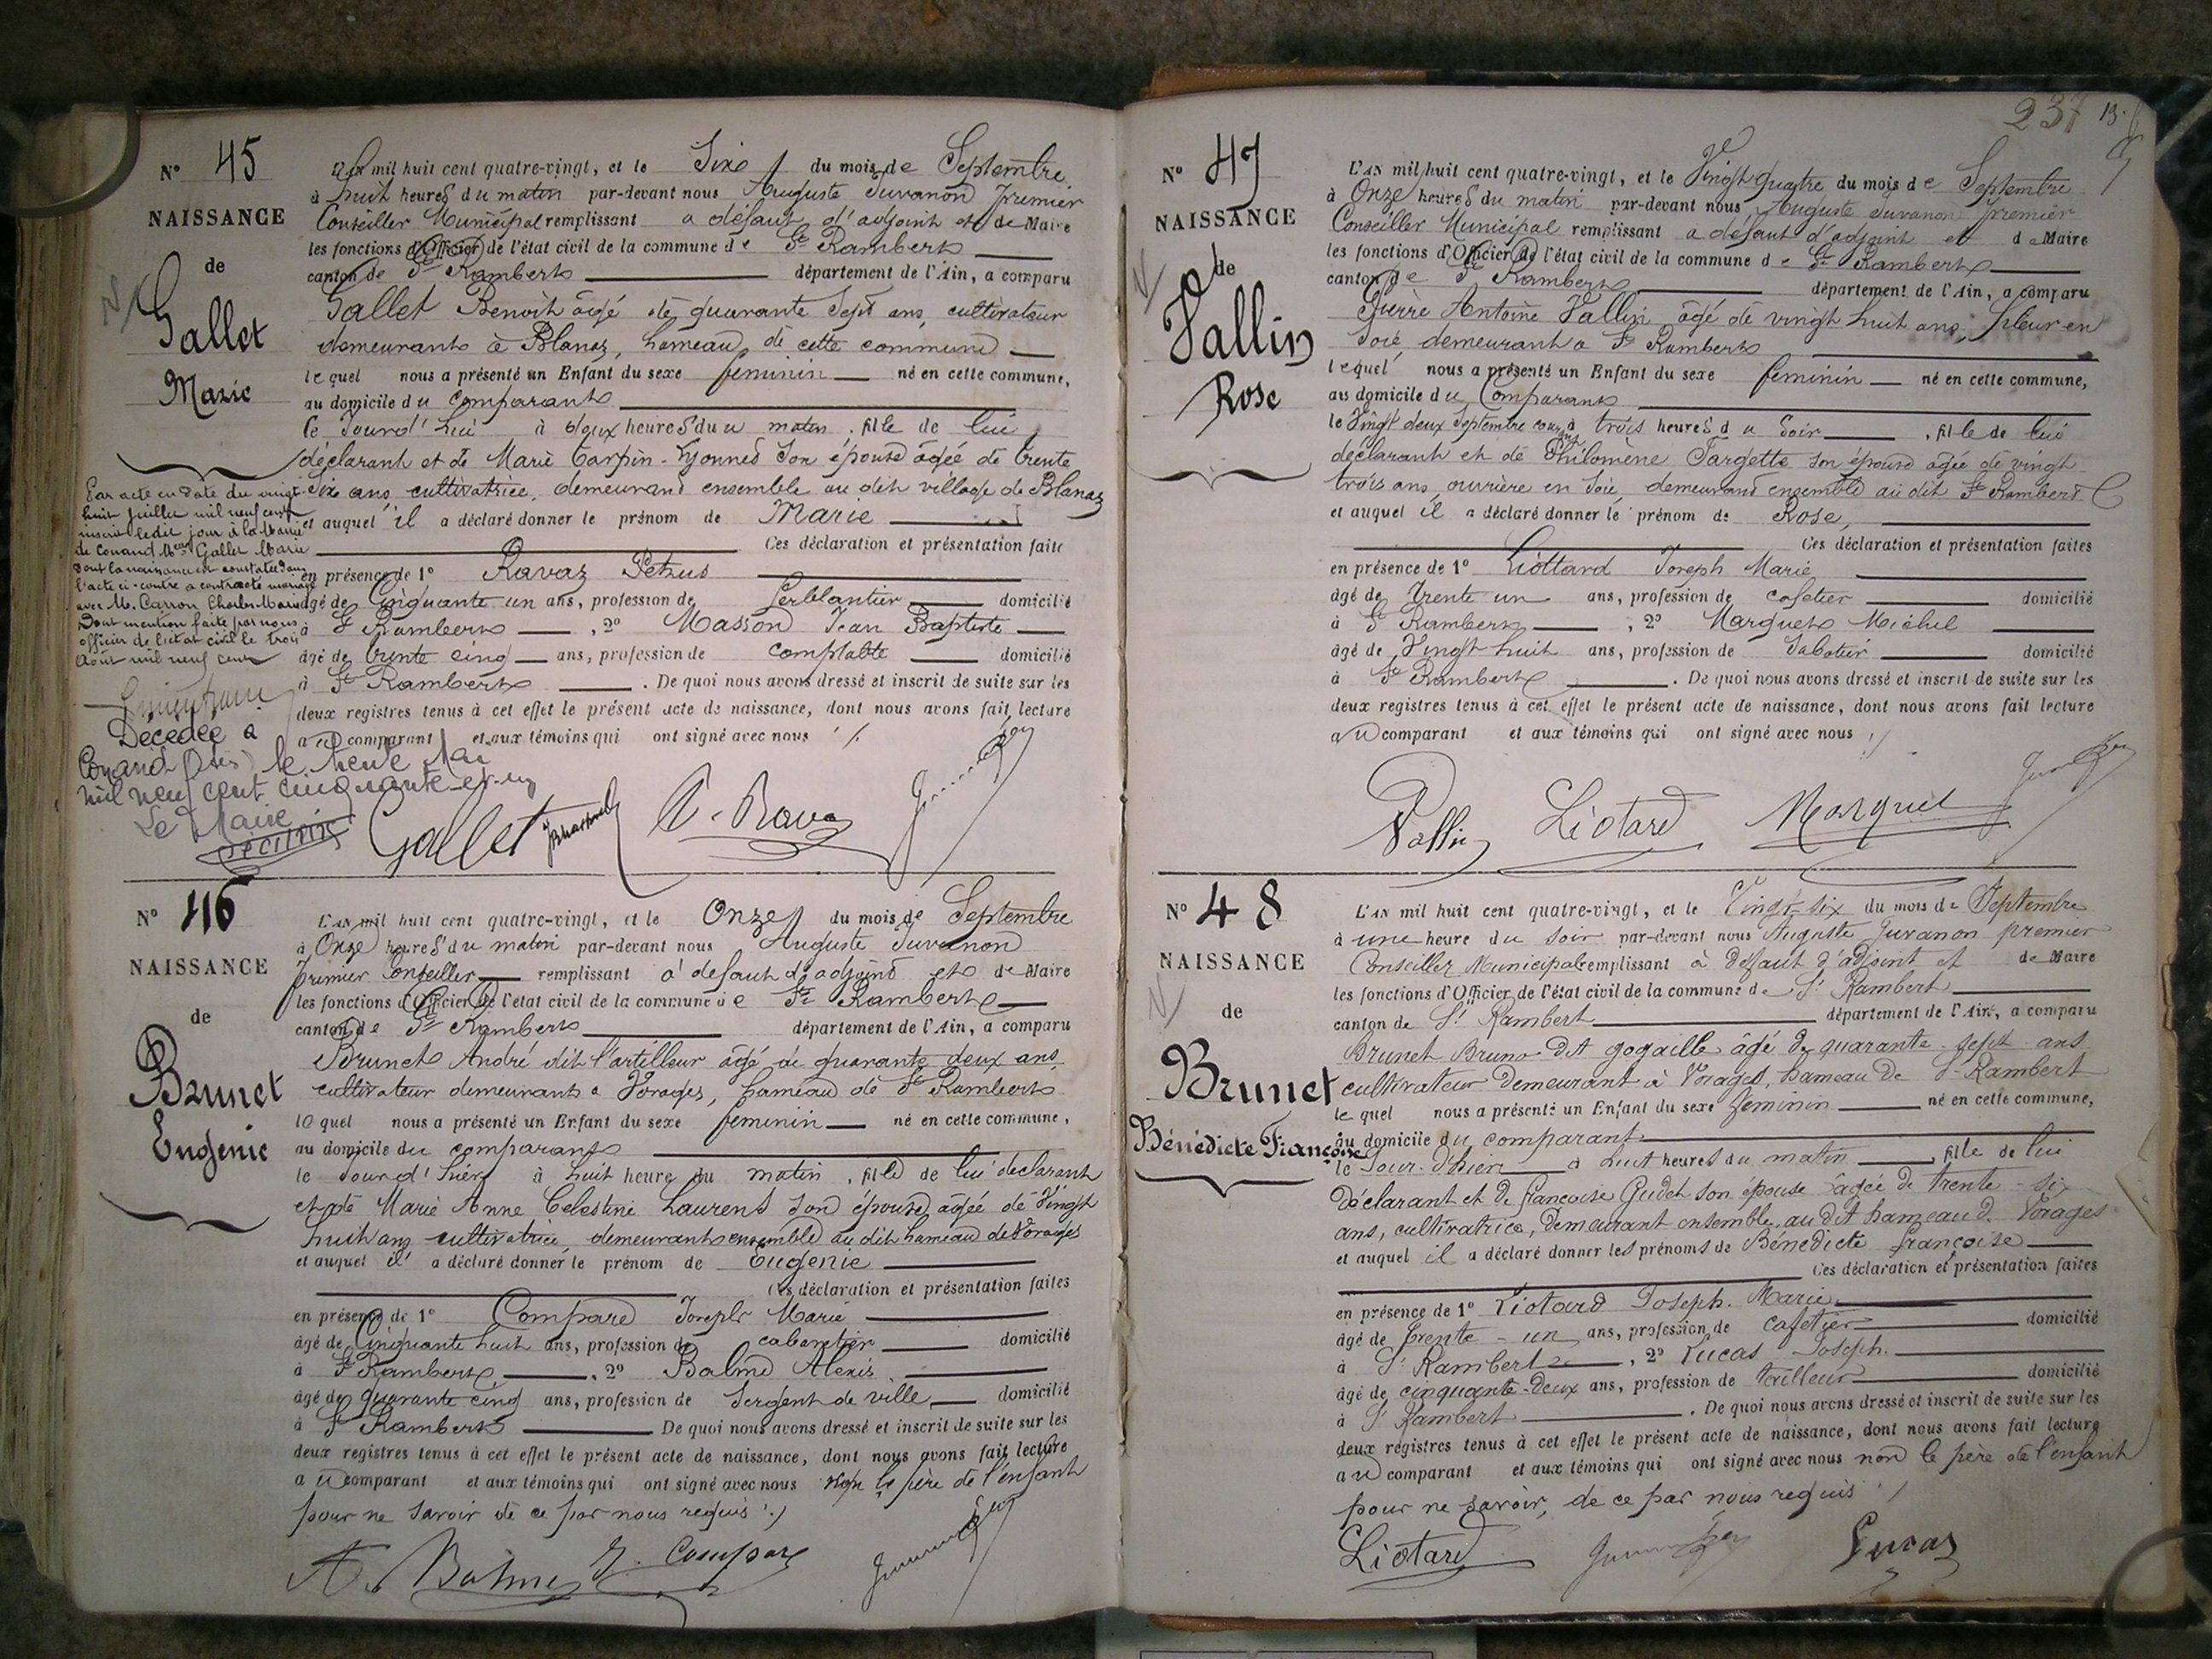 N° 45
NAISSANCE
de
Gallet
Marie
L'an mil huit cent quatre-vingt, et le Six du mois de Septembre
à huit heures du matin par-devant nous Auguste Juvanon premier
Conseiller Municipal remplissant a défaut d'adjoint et de Maire
les fonctions d'Officier de l'état civil de la commune de St Rambert
canton de St Rambert département de l'Ain, a comparu
Gallet Benoit âgé de quarante sept ans, cultivateur
demeurant à Blanaz, hameau de cette commune
lequel nous a présenté un Enfant du sexe feminin né en cette commune,
au domicile du Comparant
le Jourd'hui à deux heures du matin, fille de lui
déclarant et de Marie Carpin-Lyonnes son épouse âgée de trente
six ans cultivatrice, demeurand ensemble au dit village de Blanaz
et auquel il a déclaré donner le prénom de Marie
Ces déclaration et présentation faite
en présence de 1° Ravaz Petrus
âgé de Cinquante un ans, profession de ferblantier domicilié
à St Rambert, 2° Masson Jean Baptiste
âgé de trente cinq ans, profession de comptable domicilié
à St Rambert. De quoi nous avons dressé et inscrit de suite sur les
deux registres tenus à cet effet le présent acte de naissance, dont nous avons fait lecture
au comparant et aux témoins qui ont signé avec nous
Par acte en date du vingt
huit juillet mil neuf cent
inscrit ledit jour à la Mairie
de Conand Melle Gallet Marie
dont la naissance est constatée dans
l'acte ci-contre a contracté mariage
avec M. Carron Charles Marie
Dont mention faite par nous
officier de l'état civil le trois
Août mil neuf cent
Decédée à
Conand (Ain) le trente Mai
mil neuf cent cinquante-et-un
Le Maire
Gallet P. Ravaz
N° 46
NAISSANCE
de
Brunet
Eugenie
L'an mil huit cent quatre-vingt, et le Onze du mois de Septembre
à Onze heures du matin par-devant nous Auguste Juvanon
premier Conseiller remplissant à defaut d'adjoint et de Maire
les fonctions d'Officier de l'état civil de la commune de St Rambert
canton de St Rambert département de l'Ain, a comparu
Brunet André dit l'artilleur âgé de quarante deux ans,
cultivateur demeurant a Vorages, hameau de St Rambert
lequel nous a présenté un Enfant du sexe feminin né en cette commune,
au domicile du comparant
le Jourd'hier à huit heure du matin, fille de lui declarant
et de Marie Anne Celestine Laurent son épouse âgée de vingt
huit ans cultivatrice, demeurant ensemble au dit hameau de Vorages
et auquel il a déclaré donner le prénom de Eugenie
Ces déclaration et présentation faites
en présence de 1° Compare Joseph Marie
âgé de Cinquante huit ans, profession de cabaretier domicilié
à St Rambert, 2° Balme Alexis
âgé de quarante cinq ans, profession de Sergent de ville domicilié
à St Rambert De quoi nous avons dressé et inscrit de suite sur les
deux registres tenus à cet effet le présent acte de naissance, dont nous avons fait lecture
au comparant et aux témoins qui ont signé avec nous non le père de l'enfant
pour ne savoir de ce par nous requis
A. Balme J. Compare
237
N° 47
NAISSANCE
de
Vallin
Rose
L'an mil huit cent quatre-vingt, et le Vingt quatre du mois de Septembre
à Onze heures du matin par-devant nous Auguste Juvanon premier
Conseiller Municipal remplissant a défaut d'adjoint et de Maire
les fonctions d'Officier de l'état civil de la commune de St Rambert
canton de St Rambert département de l'Ain, a comparu
Pierre Antoine Vallin âgé de vingt huit ans, fileur en
soie, demeurant a St Rambert
lequel nous a présenté un Enfant du sexe feminin né en cette commune,
au domicile du Comparant
le Vingt deux Septembre courant à trois heures du Soir, fille de lui
declarant et de Philomène Target​te son épouse âgée de vingt
trois ans, ouvrière en soie, demeurand ensemble au dit St Rambert
et auquel il a déclaré donner le prénom de Rose,
Ces déclaration et présentation faites
en présence de 1° Liottard Joseph Marie
âgé de Trente un ans, profession de cafetier domicilié
à St Rambert, 2° Marguet Michel
âgé de Vingt huit ans, profession de Sabotier domicilié
à St Rambert. De quoi nous avons dressé et inscrit de suite sur les
deux registres tenus à cet effet le présent acte de naissance, dont nous avons fait lecture
au comparant et aux témoins qui ont signé avec nous
Vallin Liotard Marguet
N° 48
NAISSANCE
de
Brunet
Bénédicte Françoise
L'an mil huit cent quatre-vingt, et le Vingt-six du mois de Septembre
à une heure du soir par-devant nous Auguste Juvanon premier
Conseiller Municipal remplissant à defaut d'adjoint et de Maire
les fonctions d'Officier de l'état civil de la commune de St Rambert
canton de St Rambert département de l'Ain, a comparu
Brunet Bruno dit gogaille âgé de quarante-sept ans
cultivateur demeurant à Vorages, hameau de St Rambert
lequel nous a présenté un Enfant du sexe feminin né en cette commune,
au domicile du comparant
le Jour d'hier à huit heures du matin, fille de lui
déclarant et de françoise Gudet son épouse âgée de trente-six
ans, cultivatrice, demeurant ensemble au dit hameau de Vorages
et auquel il a déclaré donner les prénoms de Bénédicte françoise
Ces déclaration et présentation faites
en présence de 1° Liotard Joseph-Marie
âgé de trente-un ans, profession de cafetier domicilié
à St Rambert, 2° Lucas Joseph
âgé de cinquante-deux ans, profession de tailleur domicilié
à St Rambert. De quoi nous avons dressé et inscrit de suite sur les
deux registres tenus à cet effet le présent acte de naissance, dont nous avons fait lecture
au comparant et aux témoins qui ont signé avec nous non le père de l'enfant
pour ne savoir, de ce par nous requis
Liotard Lucas